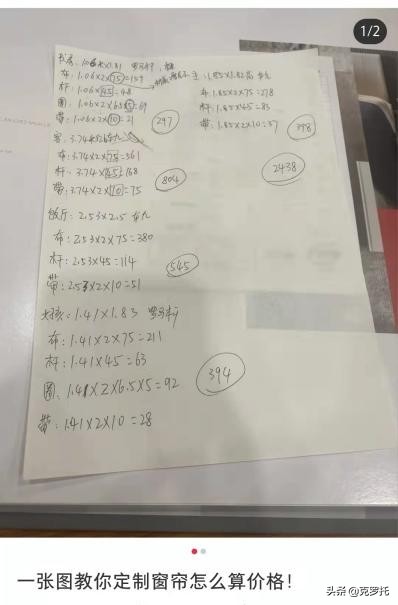 1/2
书房:1.06米×1.81 罗马杆
布:1.06×2×75=159
杆:1.06×45=48
圈:1.06×2×6.5×5=69
带:1.06×2×10=21
297
主:1.85×1.82高
布:1.85×2×75=278
杆:1.85×45=83
带:1.85×2×10=37
398
2438
客:3.74米
布:3.74×2×75=561
杆:3.74×45=168
带:3.74×2×10=75
804
饭厅:2.53×2.5
布:2.53×2×75=380
杆:2.53×45=114
带:2.53×2×10=51
545
女孩:1.41×1.83 罗马杆
布:1.41×2×75=211
杆:1.41×45=63
圈:1.41×2×6.5×5=92
带:1.41×2×10=28
394
一张图教你定制窗帘怎么算价格!
头条 @克罗托